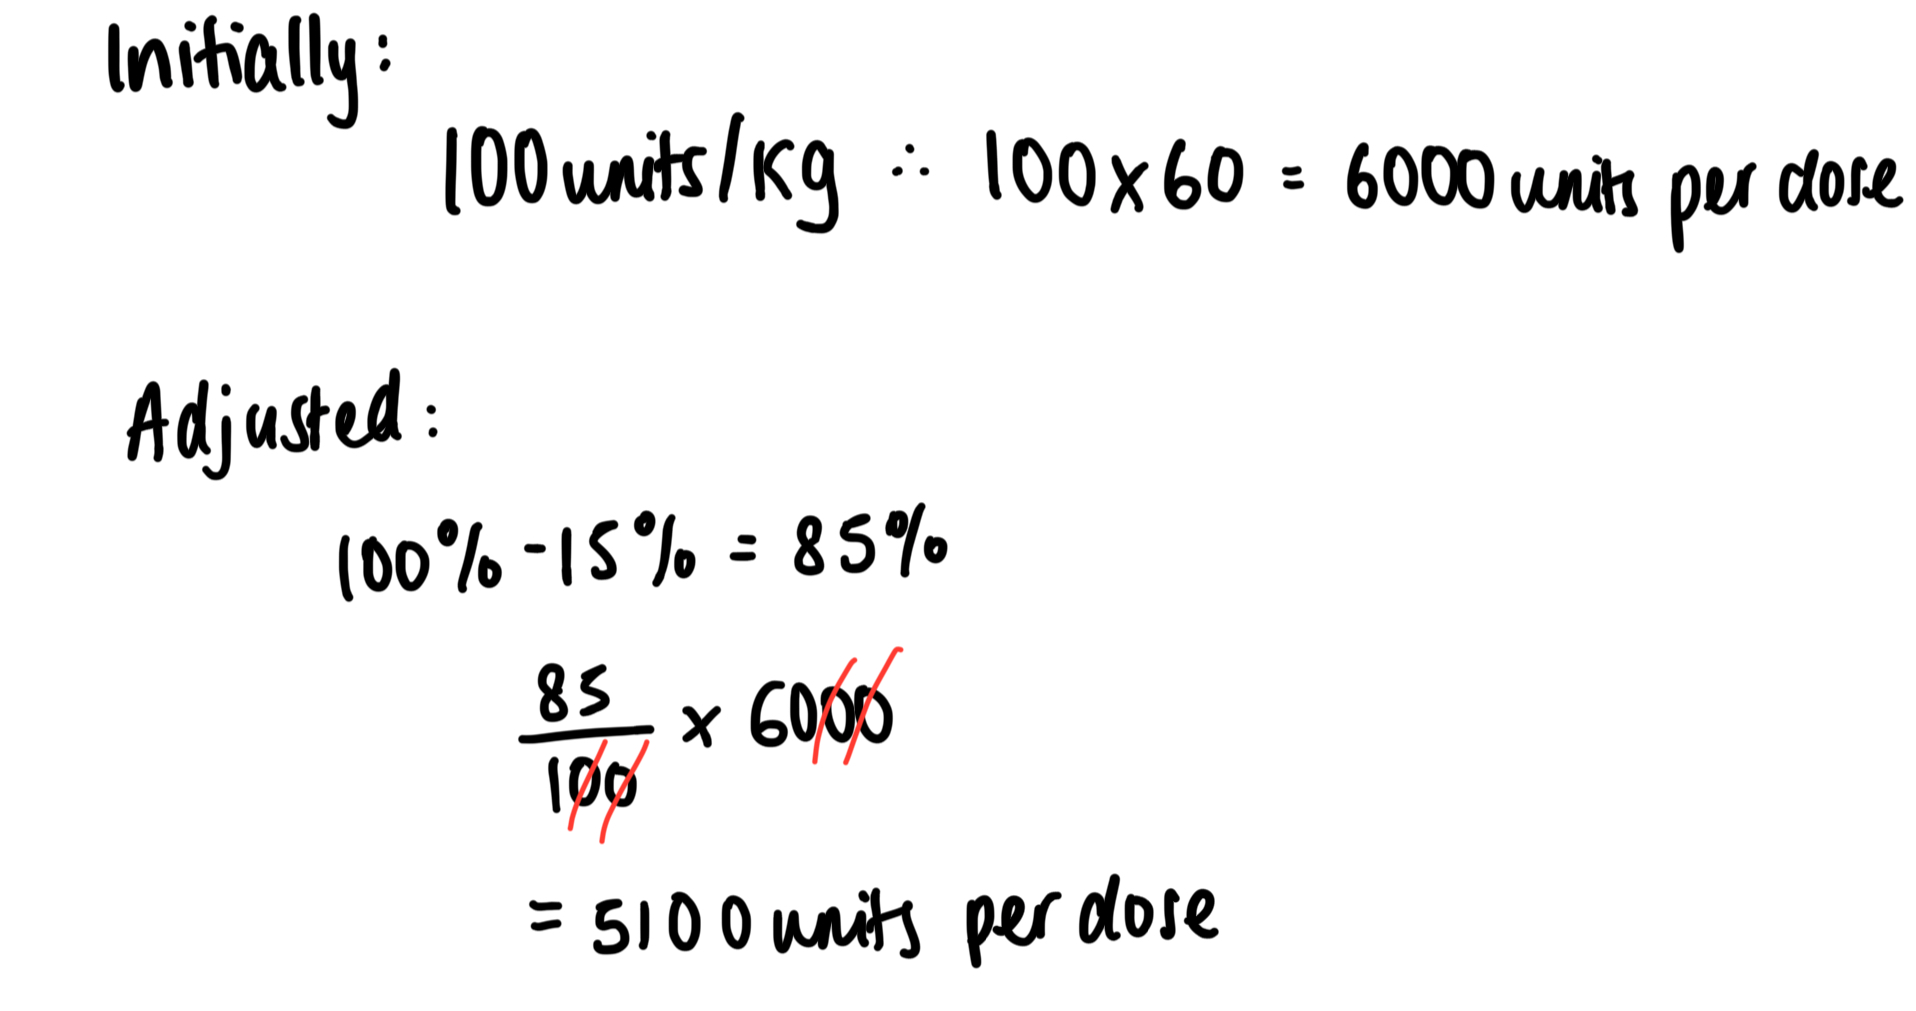 Initially:
100 units/kg ∴ 100 x 60 = 6000 units per dose
Adjusted:
100% - 15% = 85%
85
100
x 6000
= 5100 units per dose